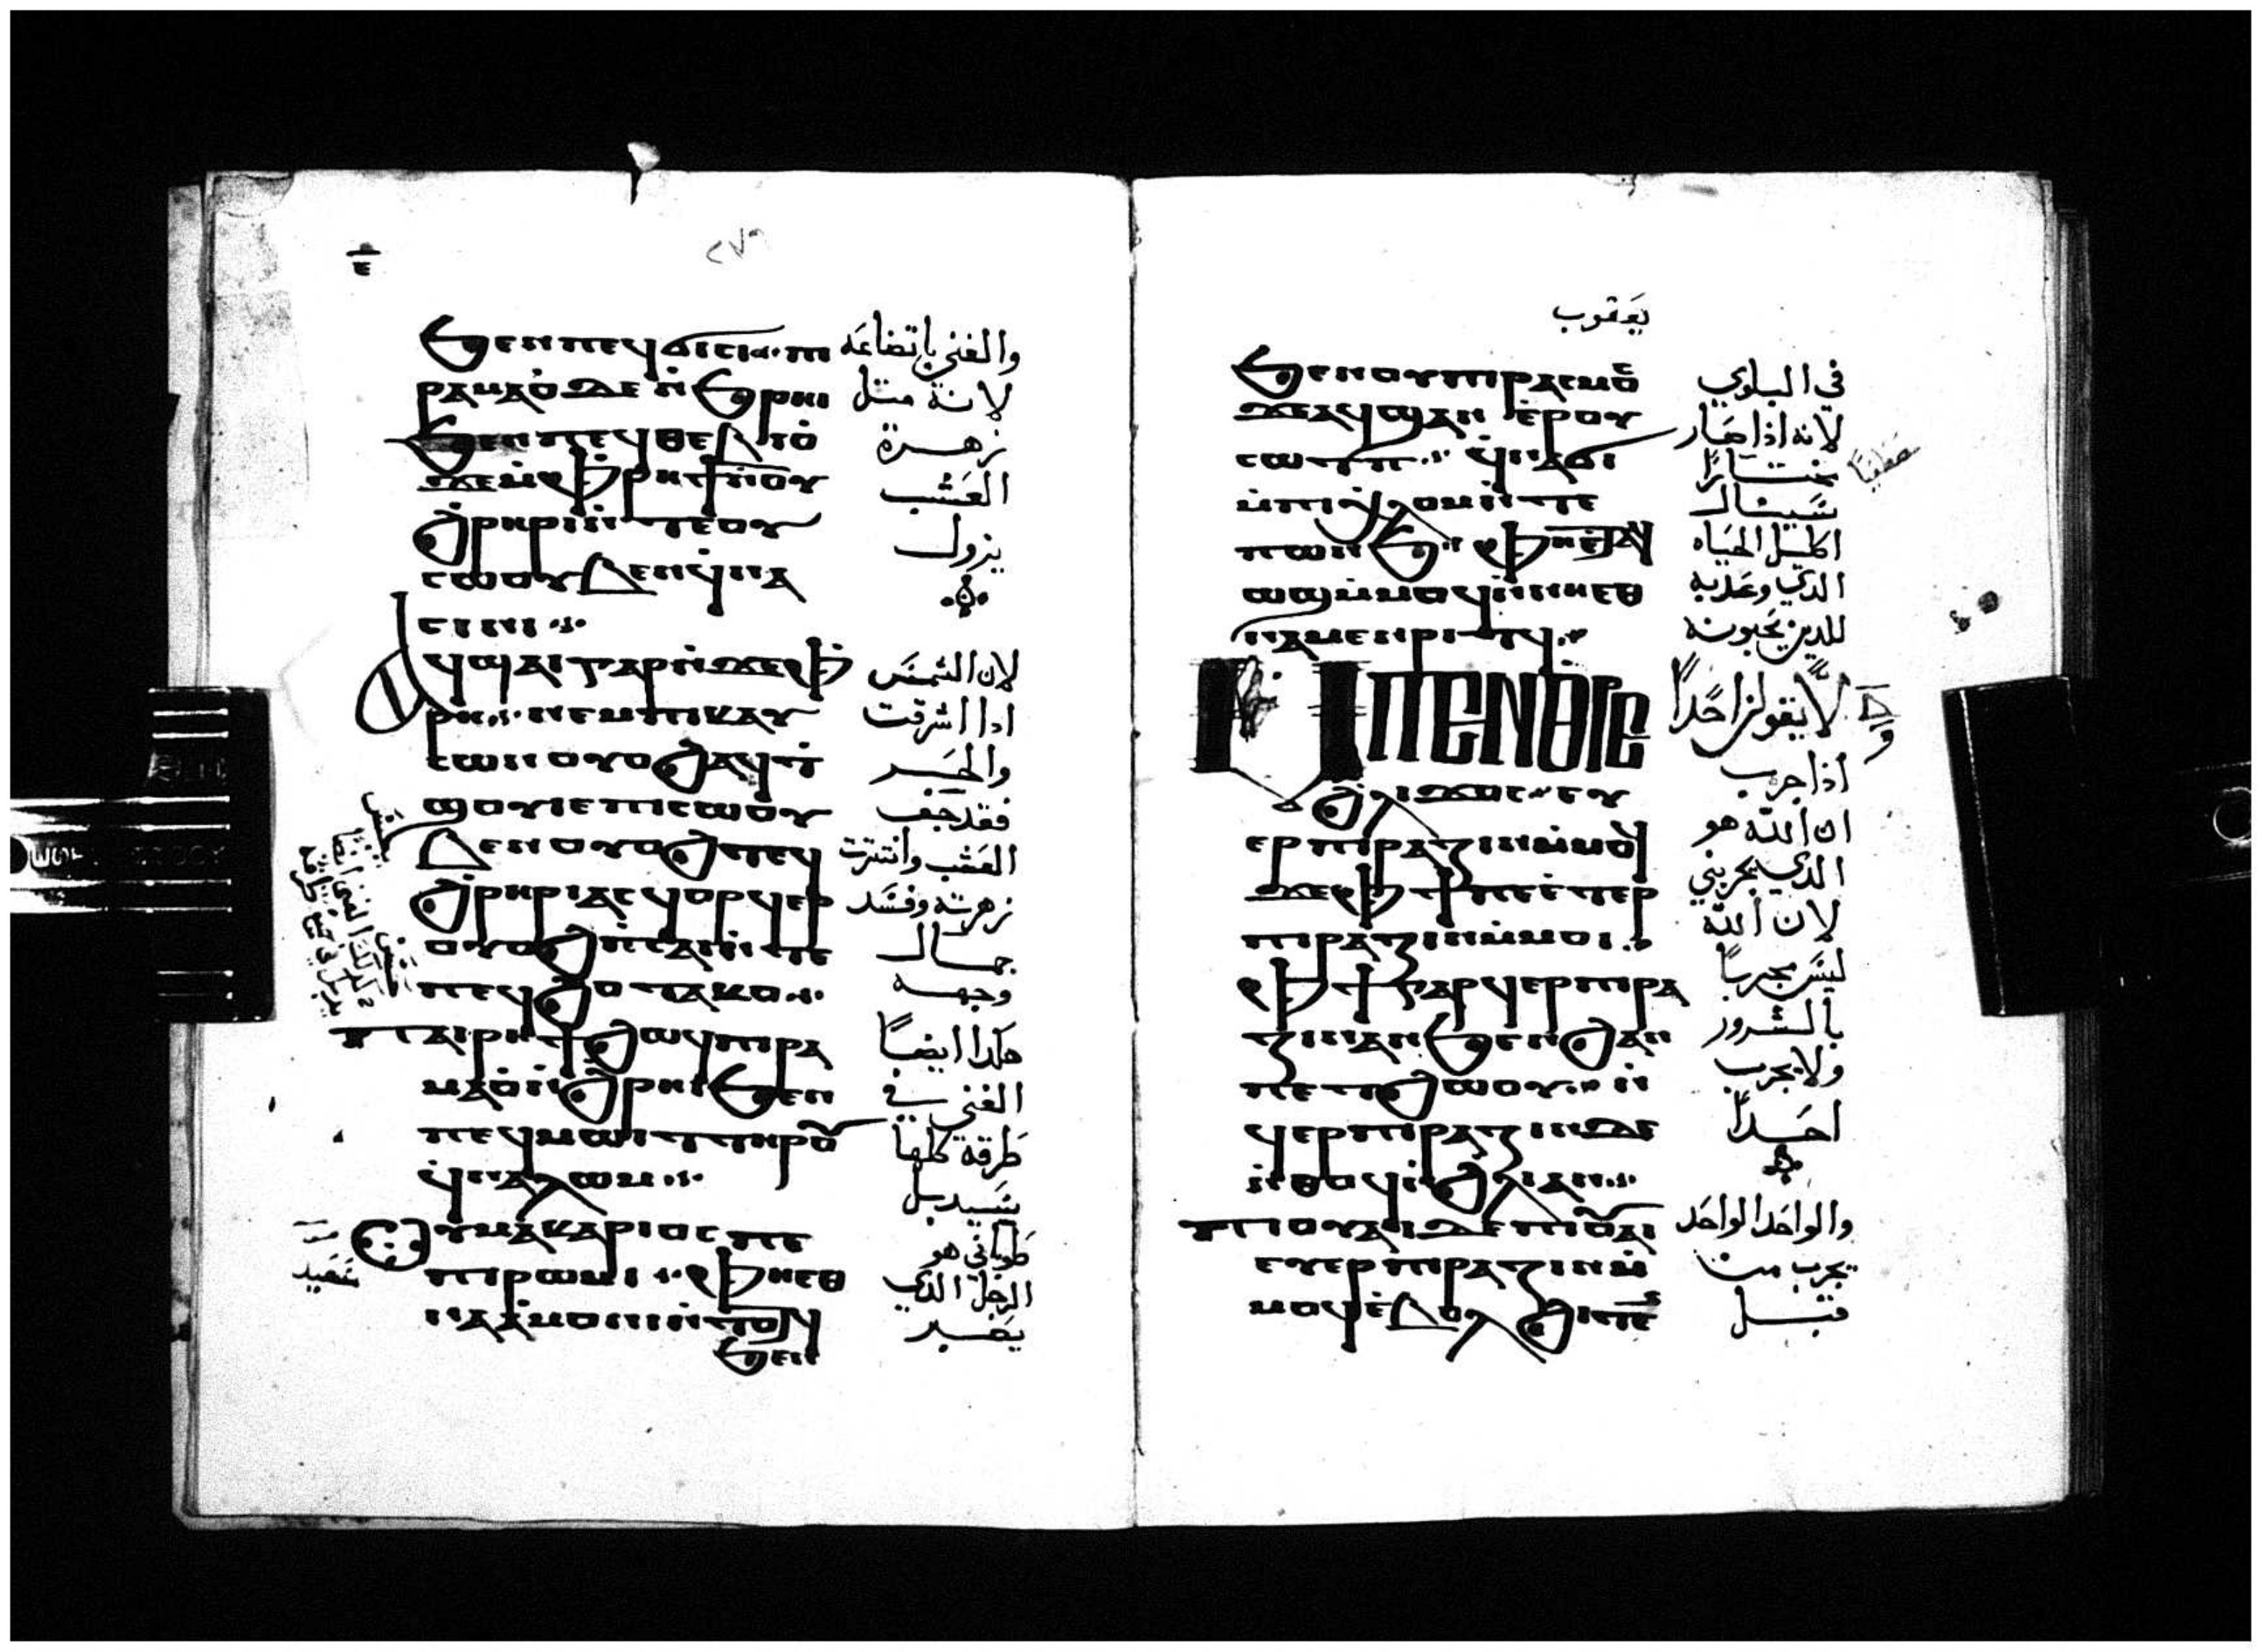 ٢٧٩
ϧⲉⲛ ⲡⲉϥϭⲓⲥⲓ · ⲡⲓ
ⲣⲁⲙⲁⲟ̀ ⲇⲉ ⲛ̀ϧⲣⲏⲓ
ϧⲉⲛ ⲡⲉϥⲑⲉⲃⲓⲟ̀
ϫⲉ ⲙ̀ⲫⲣⲏϯ ⲛ̀ⲟⲩ
ϩ̀ⲣⲏⲣⲓ ⲛ̀ⲧⲉ ⲟⲩ
ⲥⲱⲟⲩⲃⲉⲛ ϥ̀ⲛⲁ
ⲥⲓⲛⲓ
ⲁϥϣⲁⲓ ⲅⲁⲣ ⲛ̀ϫⲉ ⲫ̀
ⲣⲏ · ⲛⲉⲙ ⲡⲓⲕⲁⲩ
ⲥⲱⲛ ⲟⲩⲟϩ ⲁϥⲧ̀
ϣⲟⲩⲓⲉ ⲡⲓⲥⲱⲟⲩ
ⲃⲉⲛ ⲟⲩⲟϩ ⲧⲉϥ
ϩ̀ⲣⲏⲣⲓ ⲁⲥϥⲟⲣϥⲉⲣ
ⲟⲩⲟϩ ⲡ̀ⲥⲁⲓ ⲛ̀ⲧⲉ
ⲡⲉϥϩⲟ ⲧⲁⲕⲟ
ⲡⲁⲓⲣⲏϯ ϩⲱϥ ⲡⲓⲣⲁ
ⲙⲁⲟ̀ ⲛ̀ϩⲣⲏⲓ ϧⲉⲛ
ⲡⲉϥⲙⲱⲓⲧ ⲧⲏⲣⲟⲩ
ϥ̀ⲛⲁⲗⲱⲙ
ⲟⲩⲙⲁⲕⲁⲣⲓⲟⲥ ⲡⲉ
ⲡⲓⲣⲱⲙⲓ · ⲫⲏⲉⲑ
ⲛⲁⲁ̀ⲙⲟⲛⲓ ⲛ̀ⲧⲟⲧϥ
ϧⲉⲛ
والغني باتضاعه
لانه متل
زهرة
العشب
يزول
لان الشمس
اذا اشرقت
والحر
فقد جفف
العشب وانتثرت
زهرته وفسد
جمال
وجهه
هكدا ايضاً
الغني في
طرقه كلها
سيدبل
طوباني هو
الرجل الدي
يصبر
يعقوب
ϧⲉⲛ ⲟⲩⲡⲓⲣⲁⲥⲙⲟⲥ
ϫⲉ ⲁϥϣⲁⲛ ⲉ̀ⲣⲟⲩ
ⲥⲱⲧⲡ · ϥ̀ⲛⲁϭⲓ
ⲙ̀ⲡⲓⲭ̀ⲗⲟⲙ ⲛ̀ⲧⲉ
ⲡⲱⲛϧ · ⲫⲏⲉ̀ⲧⲁϥ
ⲱϣ ⲙ̀ⲙⲟϥ ⲛ̀ⲛⲏⲉⲑ
ⲛⲁⲙⲉⲛⲣⲓⲧϥ
ⲙⲡⲉⲛⲑⲣⲉ
ϩ̀ⲗⲓ ϫⲟⲥ · ⲉⲩ
ⲉⲣⲡⲓⲣⲁⲍⲓⲛ ⲙ̀ⲙⲟϥ
ϫⲉ ⲫϯ ⲡⲉⲧ̀ⲉⲣ
ⲡⲓⲣⲁⲍⲓⲛ ⲙ̀ⲙⲟⲓ
ⲫϯ ⲅⲁⲣ ϥⲉⲣⲡⲓⲣⲁ
ⲍⲓⲛ ⲁⲛ ϧⲉⲛ ϩⲁⲛ
ⲡⲉⲧϩⲱⲟⲩ · ⲛ̀
ϥⲉⲣⲡⲓⲣⲁⲍⲓⲛ ⲇⲉ
ⲛ̀ⲑⲟϥ ⲛ̀ϩⲗⲓ ⲁⲛ
ⲡⲓⲟⲩⲁⲓ ⲇⲉ ⲡⲓⲟⲩⲁⲓ
ⲉⲩⲉⲣⲡⲓⲣⲁⲍⲓⲛ ⲙ̀
ⲙⲟϥ ⲉ̀ⲃⲟⲗ ϩⲓⲧⲉⲛ
في البلوي
لانه اذا صار
مختاراً
سينال
اكليل الحياه
الدي وعد به
للدين يحبونه
لا يقولن احداً
اذا جرب
ان الله هو
الدي يجربني
لان الله
ليس مجرباً
بالشرور
ولا يجرب
احداً
والواحد الواحد
يجرب من
قبل